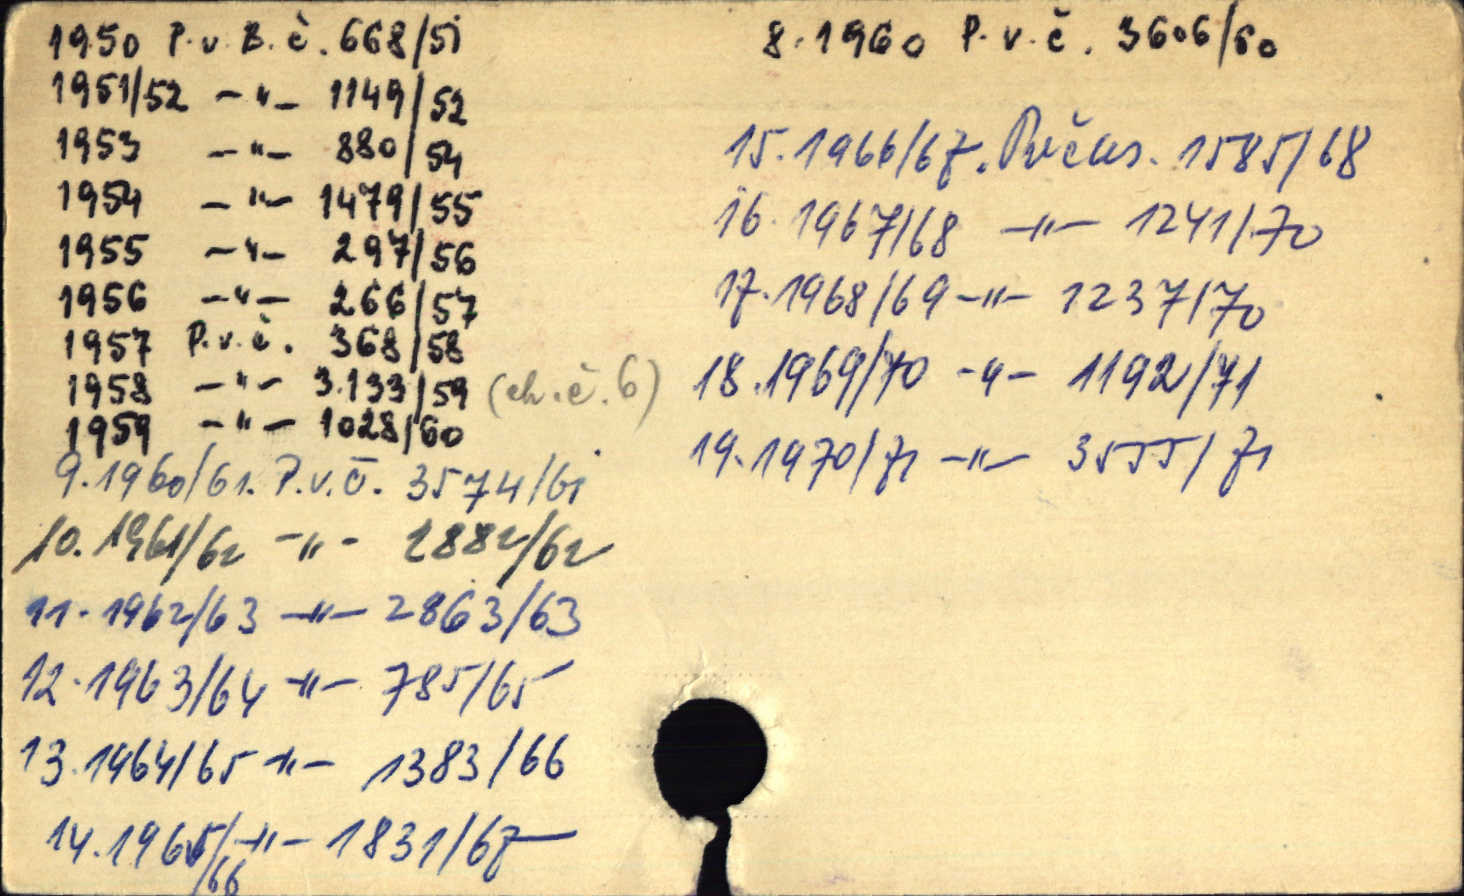 1950 P.v.B.č. 668/51
1951/52 -"- 1149/52
1953 -"- 880/54
1954 -"- 1479/55
1955 -"- 297/56
1956 -"- 266/57
1957 P.v.č. 368/58
1958 -"- 3.133/59 (ch.č.6)
1959 -"- 1028/60
9.1960/61. P.v.č. 3574/61
10.1961/62 -"- 2882/62
11.1962/63 -"- 2863/63
12.1963/64 -"- 785/65
13.1964/65 -"- 1383/66
14.1965/66 -"- 1831/67
8.1960 P.v.č. 3606/60
15.1966/67. 1585/68
16.1967/68 -"- 1241/70
17.1968/69 -"- 1237/70
18.1969/70 -"- 1192/71
19.1970/71 -"- 3555/71